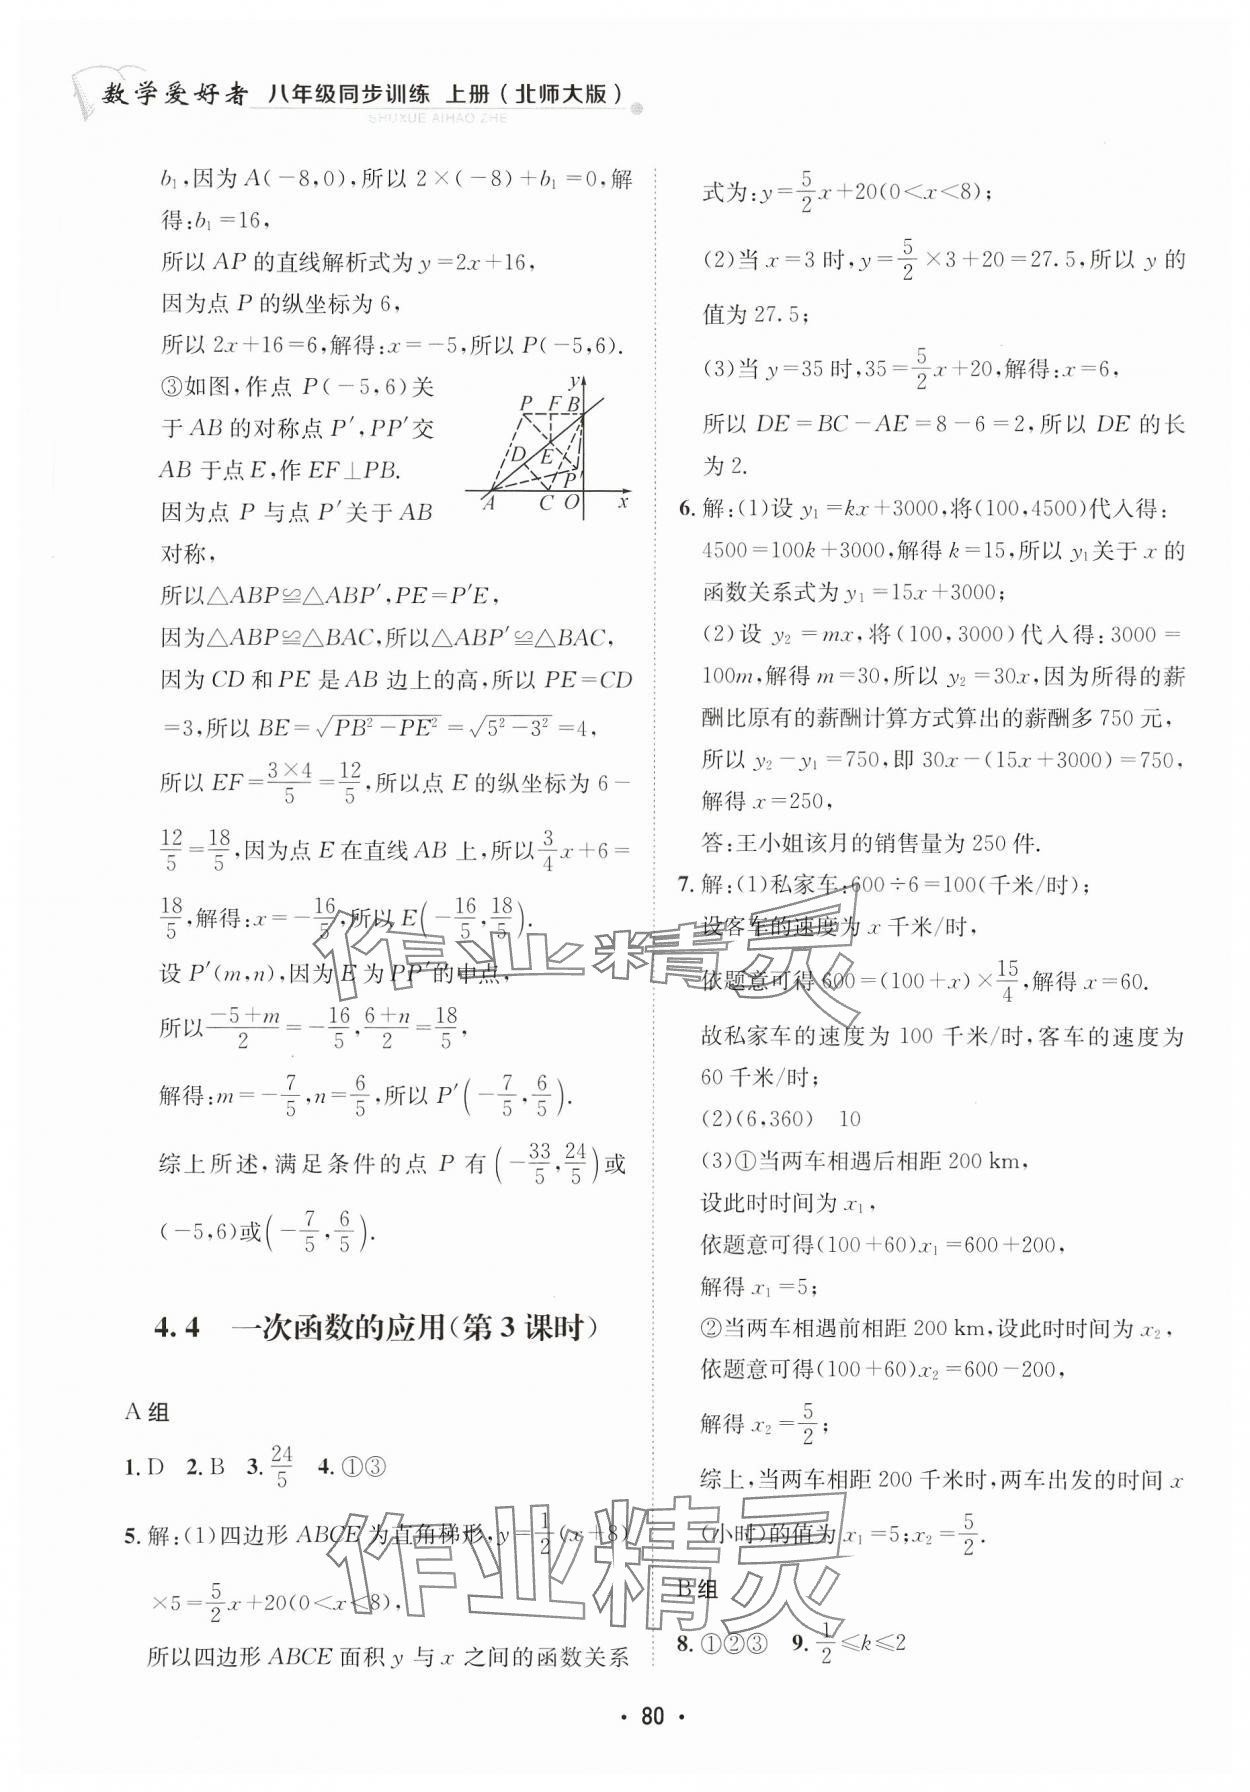 数学爱好者 八年级同步训练 上册(北师大版)
SHUXUE AIHAO ZHE
b₁,因为 A(−8,0),所以 2×(−8)+b₁=0,解
得:b₁=16,
所以 AP 的直线解析式为 y=2x+16,
因为点 P 的纵坐标为 6,
所以 2x+16=6,解得:x=−5,所以 P(−5,6).
③如图,作点 P(−5,6)关
于 AB 的对称点 P′,PP′交
AB 于点 E,作 EF⊥PB.
因为点 P 与点 P′关于 AB
对称,
y
P F B
D E
P′
A C O x
所以△ABP≌△ABP′,PE=P′E,
因为△ABP≌△BAC,所以△ABP′≌△BAC,
因为 CD 和 PE 是 AB 边上的高,所以 PE=CD
=3,所以 BE=√(PB²−PE²)=√(5²−3²)=4,
所以 EF=3×4/5=12/5,所以点 E 的纵坐标为 6−
12/5=18/5,因为点 E 在直线 AB 上,所以 3/4x+6=
18/5,解得:x=−16/5,所以 E(−16/5,18/5).
设 P′(m,n),因为 E 为 PP′的中点,
所以(−5+m)/2=−16/5,(6+n)/2=18/5,
解得:m=−7/5,n=6/5,所以 P′(−7/5,6/5).
综上所述,满足条件的点 P 有(−33/5,24/5)或
(−5,6)或(−7/5,6/5).
4.4 一次函数的应用(第 3 课时)
A 组
1. D 2. B 3. 24/5 4. ①③
5. 解:(1)四边形 ABCE 为直角梯形,y=1/2(x+8)
×5=5/2x+20(0<x<8),
所以四边形 ABCE 面积 y 与 x 之间的函数关系
式为:y=5/2x+20(0<x<8);
(2)当 x=3 时,y=5/2×3+20=27.5,所以 y 的
值为 27.5;
(3)当 y=35 时,35=5/2x+20,解得:x=6,
所以 DE=BC−AE=8−6=2,所以 DE 的长
为 2.
6. 解:(1)设 y₁=kx+3000,将(100,4500)代入得:
4500=100k+3000,解得 k=15,所以 y₁关于 x 的
函数关系式为 y₁=15x+3000;
(2)设 y₂=mx,将(100,3000)代入得:3000=
100m,解得 m=30,所以 y₂=30x,因为所得的薪
酬比原有的薪酬计算方式算出的薪酬多 750 元,
所以 y₂−y₁=750,即 30x−(15x+3000)=750,
解得 x=250,
答:王小姐该月的销售量为 250 件.
7. 解:(1)私家车:600÷6=100(千米/时);
设客车的速度为 x 千米/时,
依题意可得 600=(100+x)×15/4,解得 x=60.
故私家车的速度为 100 千米/时,客车的速度为
60 千米/时;
(2)(6,360) 10
(3)①当两车相遇后相距 200 km,
设此时时间为 x₁,
依题意可得(100+60)x₁=600+200,
解得 x₁=5;
②当两车相遇前相距 200 km,设此时时间为 x₂,
依题意可得(100+60)x₂=600−200,
解得 x₂=5/2;
综上,当两车相距 200 千米时,两车出发的时间 x
(小时)的值为 x₁=5;x₂=5/2.
B 组
8. ①②③ 9. 1/2≤k≤2
作业精灵
作业精灵
· 80 ·